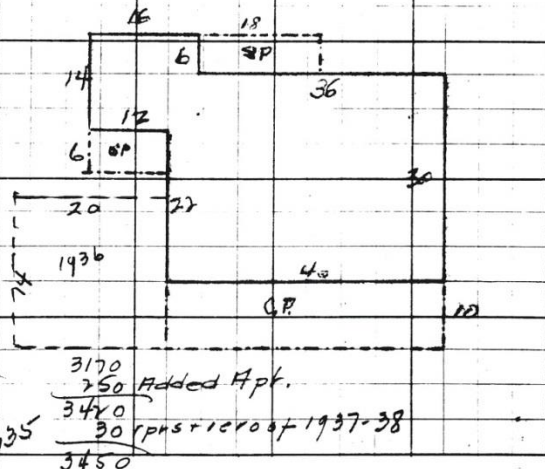 16
18
6
14
36
12
6
30
20
22
1936
40
C.P.
10
3170
250 Added Apt.
3420
30 rprs + reroof 1937-38
35
3450